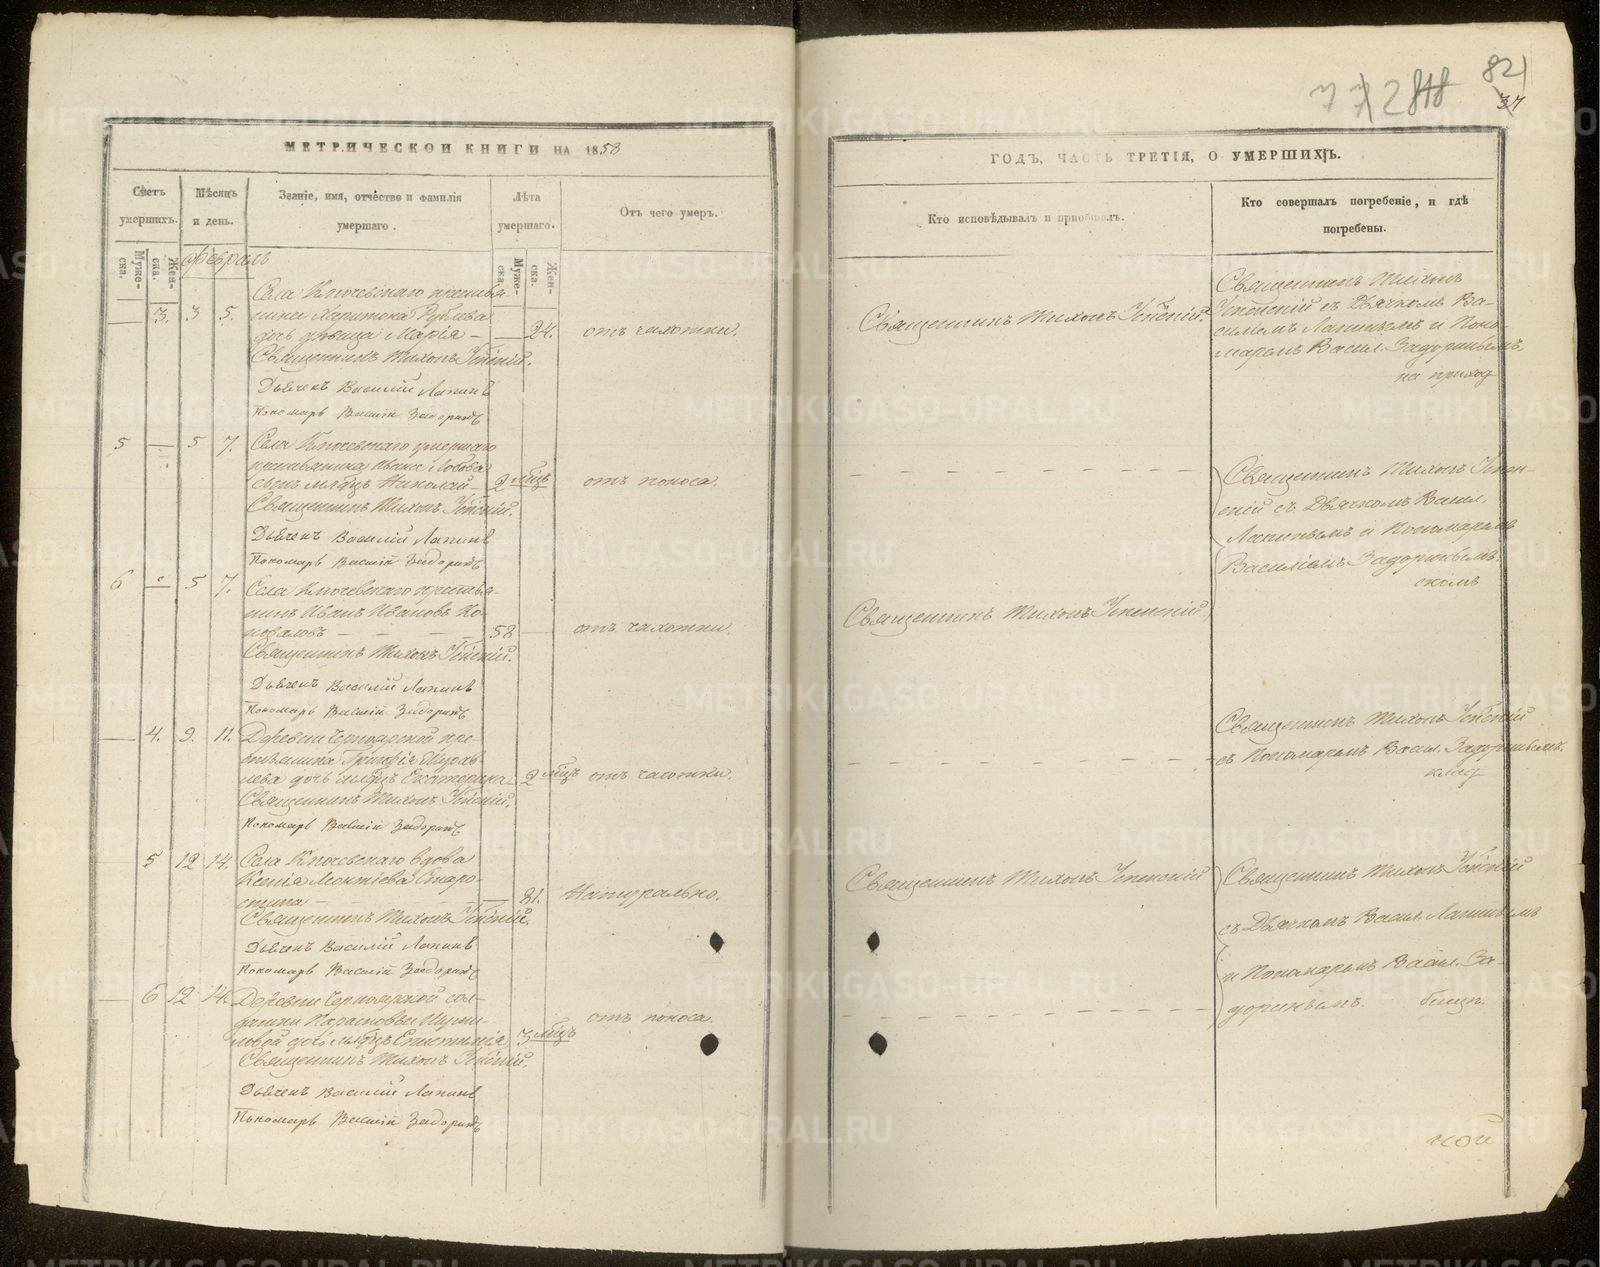 82
37
МЕТРИЧЕСКОЙ КНИГИ НА 1858
Счетъ умершихъ.
Мужеска.
Женска.
Мѣсяцъ и день.
Званіе, имя, отчество и фамилія умершаго.
Лѣта умершаго.
Мужеска.
Женска.
Отъ чего умеръ.
февраль
3. 3 5. Села Ключевскаго крестья-
нина Харитона
дочь дѣвица Марія — 24. отъ чахотки.
Священникъ Тихонъ Успенскій.
Дьячекъ Василій Лапинъ
Пономарь Василій Задоринъ
5 — 5 7. Села Ключевскаго умершаго
Ивана
сынъ младнц Николай — 2 мѣц отъ поноса.
Священникъ Тихонъ Успенскій.
Дьячекъ Василій Лапинъ
Пономарь Василій Задоринъ
6 — 5 7. Села Ключевскаго крестья-
нинъ Иванъ Ивановъ Ко-
новаловъ — — — 52 — отъ чахотки.
Священникъ Тихонъ Успенскій.
Дьячекъ Василій Лапинъ
Пономарь Василій Задоринъ
— 4. 9. 11. Деревни Черноярской кре-
стьянина
дочь младнц Екатерина 2 мѣц отъ чахотки.
Священникъ Тихонъ Успенскій.
Пономарь Василій Задоринъ
5 12 14. Села Ключевскаго вдова
Ксенія Старо-
стина — — — 81. Натурально.
Священникъ Тихонъ Успенскій.
Дьячекъ Василій Лапинъ
Пономарь Василій Задоринъ
— 6 12 14. Деревни Черноярской сол-
датки
дочь младнц 3 мѣц отъ поноса.
Священникъ Тихонъ Успенскій.
Дьячекъ Василій Лапинъ
Пономарь Василій Задоринъ
ГОДЪ, ЧАСТЬ ТРЕТІЯ, О УМЕРШИХЪ.
Кто исповѣдывалъ и пріобщалъ.
Кто совершалъ погребеніе, и гдѣ
погребены.
Священникъ Тихонъ Успенскій.
Священникъ Тихонъ
Успенскій съ Дьячкомъ Ва-
силіемъ Лапинымъ и Поно-
маремъ Васил. Задоринымъ,
на приход
Священникъ Тихонъ Успен-
скій съ Дьячкомъ Васил.
Лапинымъ и Пономаремъ
Василіемъ Задоринымъ
скомъ
Священникъ Тихонъ Успенскій
Священникъ Тихонъ Успенскій
съ Пономаремъ Васил. Задоринымъ.
клад
Священникъ Тихонъ Успенскій
Священникъ Тихонъ Успенскій
съ Дьячкомъ Васил. Лапинымъ
и Пономаремъ Васил. За-
доринымъ бищѣ.
METRIKI.GASO-URAL.RU